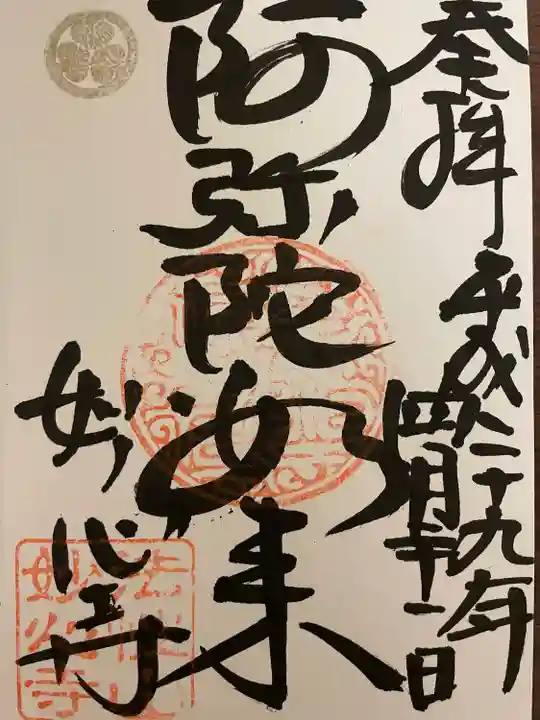 奉拝
平成二十九年
四月十一日
阿弥陀如来
妙心寺